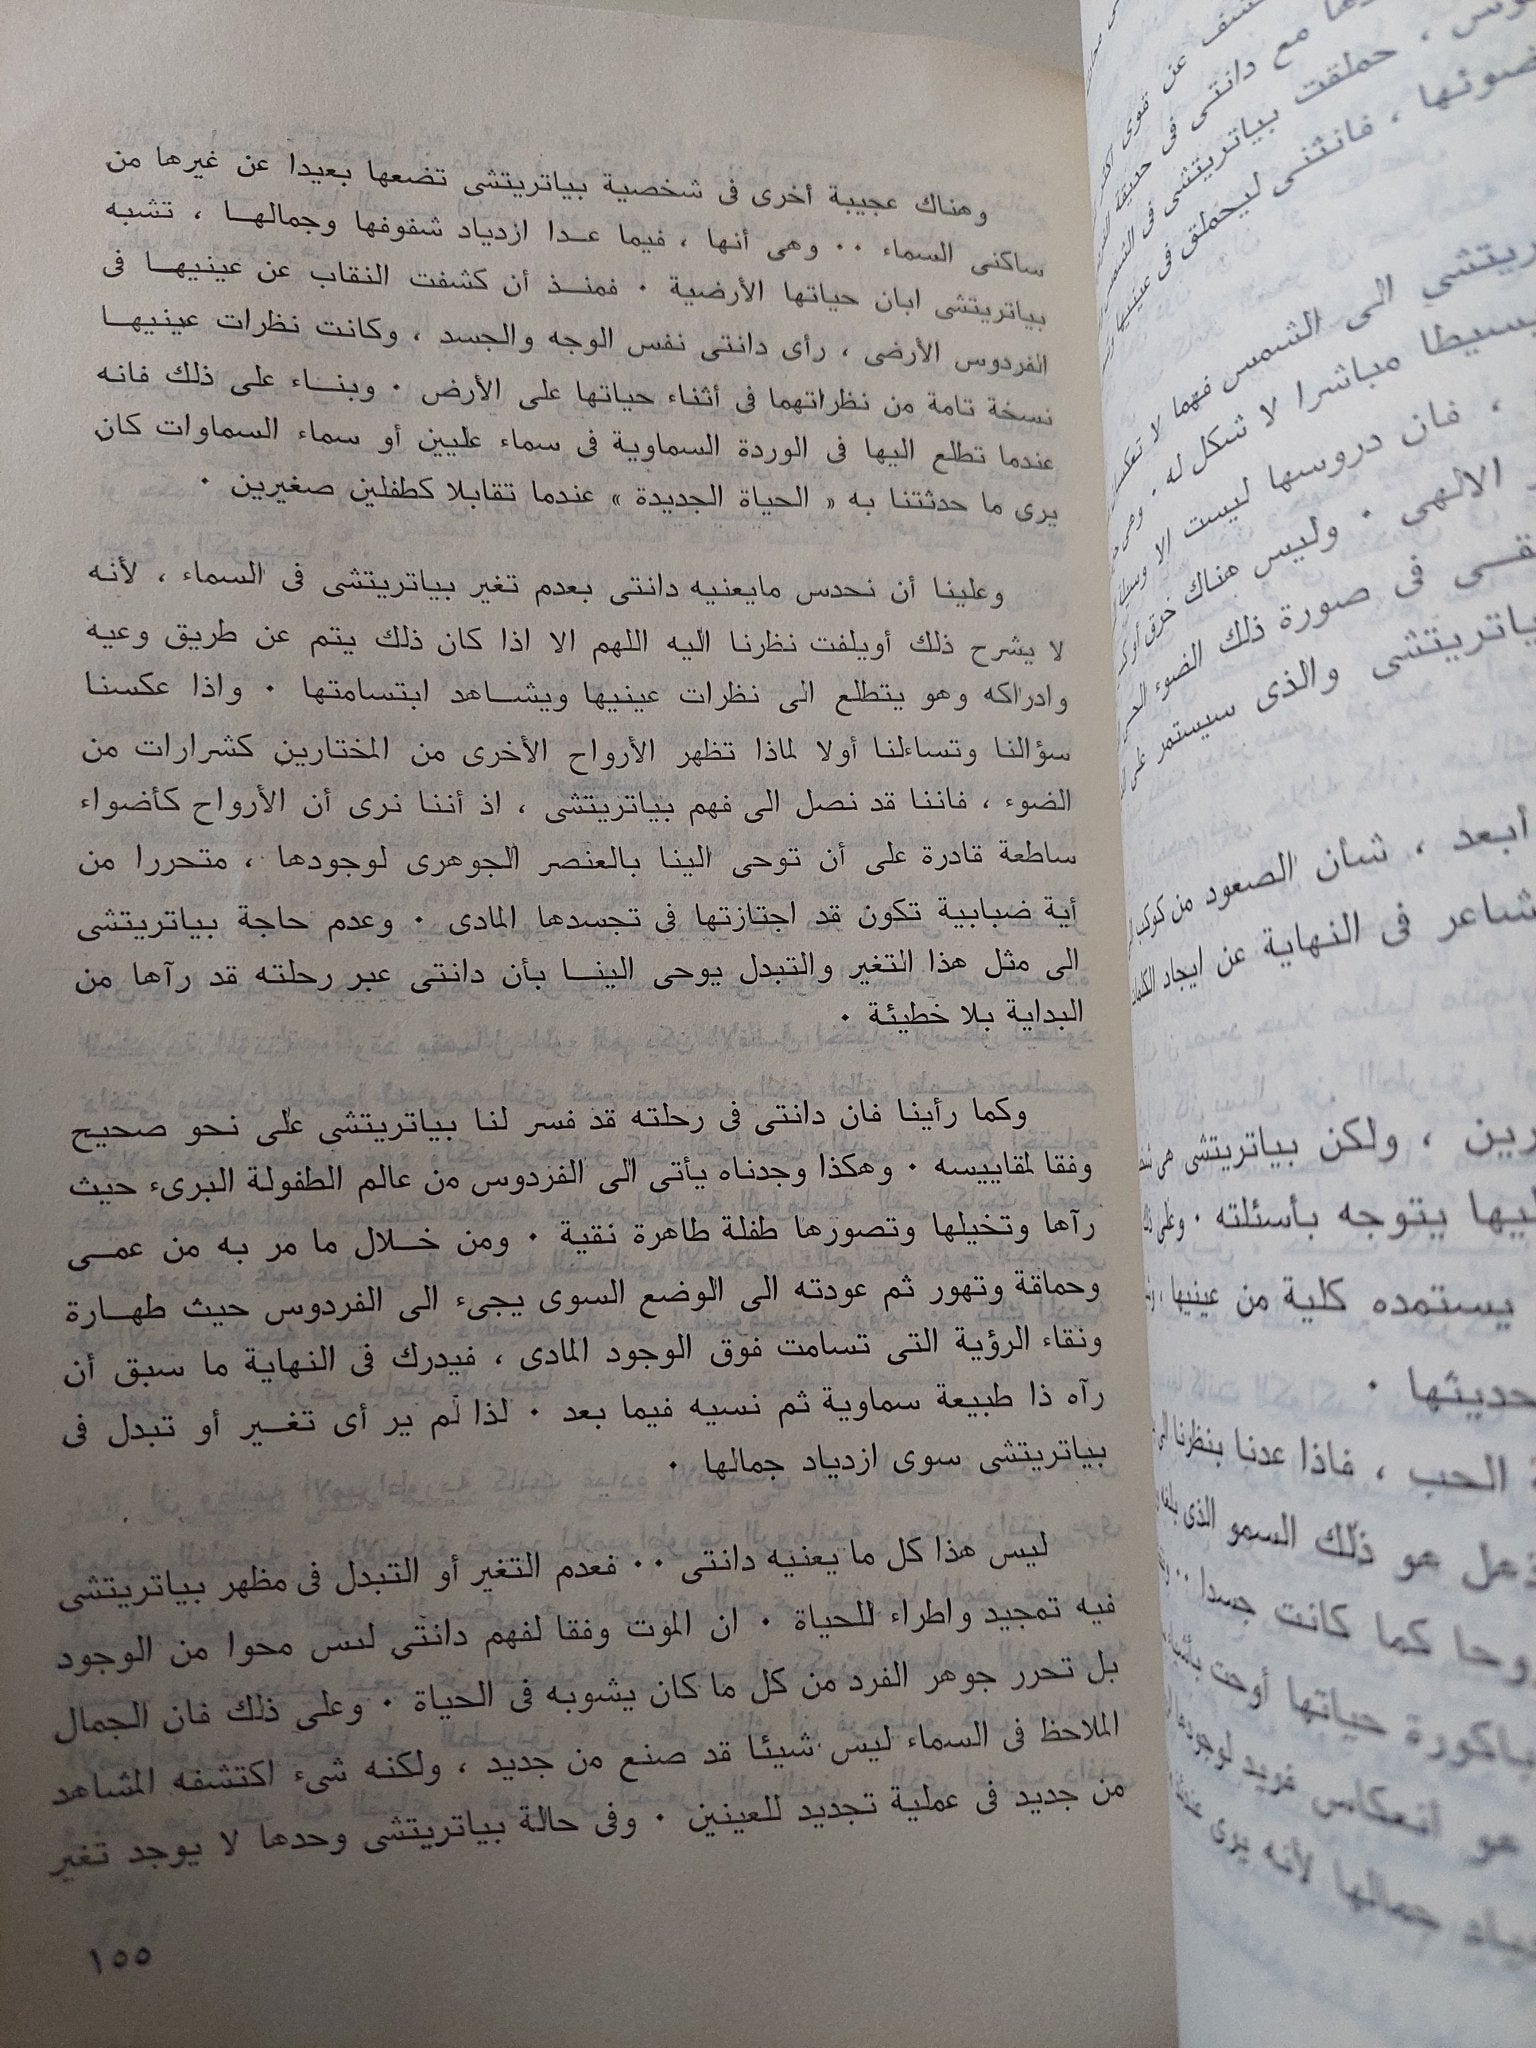 وهناك عجيبة أخرى فى شخصية بياتريتشى تضعها بعيدا عن غيرها من
ساكنى السماء ٠٠ وهى أنها ، فيما عدا ازدياد شفوفها وجمالها ، تشبه
بياتريتشى ابان حياتها الأرضية ٠ فمنذ أن كشفت النقاب عن عينيها فى
الفردوس الأرضى ، رأى دانتى نفس الوجه والجسد ، وكانت نظرات عينيها
نسخة تامة من نظراتهما فى أثناء حياتها على الأرض ٠ وبناء على ذلك فانه
عندما تطلع اليها فى الوردة السماوية فى سماء عليين أو سماء السماوات كان
يرى ما حدثتنا به « الحياة الجديدة » عندما تقابلا كطفلين صغيرين ٠
وعلينا أن نحدس مايعنيه دانتى بعدم تغير بياتريتشى فى السماء ، لأنه
لا يشرح ذلك أويلفت نظرنا اليه اللهم الا اذا كان ذلك يتم عن طريق وعيه
وادراكه وهو يتطلع الى نظرات عينيها ويشاهد ابتسامتها ٠ واذا عكسنا
سؤالنا وتساءلنا أولا لماذا تظهر الأرواح الأخرى من المختارين كشرارات من
الضوء ، فاننا قد نصل الى فهم بياتريتشى ، اذ أننا نرى أن الأرواح كأضواء
ساطعة قادرة على أن توحى الينا بالعنصر الجوهرى لوجودها ، متحررا من
أية ضبابية تكون قد اجتازتها فى تجسدها المادى ٠ وعدم حاجة بياتريتشى
الى مثل هذا التغير والتبدل يوحى الينا بأن دانتى عبر رحلته قد رآها من
البداية بلا خطيئة ٠
وكما رأينا فان دانتى فى رحلته قد فسر لنا بياتريتشى على نحو صحيح
وفقا لمقاييسه ٠ وهكذا وجدناه يأتى الى الفردوس من عالم الطفولة البرىء حيث
رآها وتخيلها وتصورها طفلة طاهرة نقية ٠ ومن خلال ما مر به من عمى
وحماقة وتهور ثم عودته الى الوضع السوى يجىء الى الفردوس حيث طهارة
ونقاء الرؤية التى تسامت فوق الوجود المادى ، فيدرك فى النهاية ما سبق أن
رآه ذا طبيعة سماوية ثم نسيه فيما بعد ٠ لذا لم ير أى تغير أو تبدل فى
بياتريتشى سوى ازدياد جمالها ٠
ليس هذا كل ما يعنيه دانتى ٠٠ فعدم التغير أو التبدل فى مظهر بياتريتشى
فيه تمجيد واطراء للحياة ٠ ان الموت وفقا لفهم دانتى ليس محوا من الوجود
بل تحرر جوهر الفرد من كل ما كان يشوبه فى الحياة ٠ وعلى ذلك فان الجمال
الملاحظ فى السماء ليس شيئا قد صنع من جديد ، ولكنه شىء اكتشفه المشاهد
من جديد فى عملية تجديد للعينين ٠ وفى حالة بياتريتشى وحدها لا يوجد تغير
١٥٥
مع دانتى فى
، حملقت بياتريتشى فى
ضوئها ، فانثنى ليحملق فى عينيها
الى الشمس فهما لا
مباشرا لا شكل له ٠
، فان دروسها ليست الا
الالهى ٠ وليس هناك
فى صورة ذلك الضوء
والذى سيستمر على
أبعد ، شأن الصعود من كوكب
فى النهاية عن ايجاد الكلمات
، ولكن بياتريتشى هى
يتوجه بأسئلته ٠ وعلى
يستمده كلية من عينيها
حديثها ٠
الحب ، فاذا عدنا بنظرنا الى
هو ذلك السمو الذى
كما كانت جسدا ٠٠
باكورة حياتها أوحت
هو انعكاس فريد لوجودها
جمالها لأنه يرى